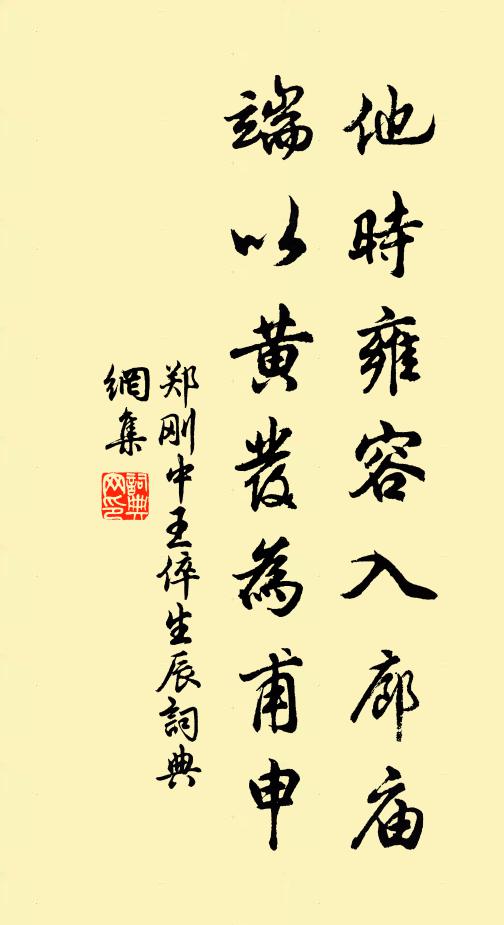 他時雍容入廊庙
端以黄發為甫申
郑刚中王倅生辰詞典
網集
詞典
网印